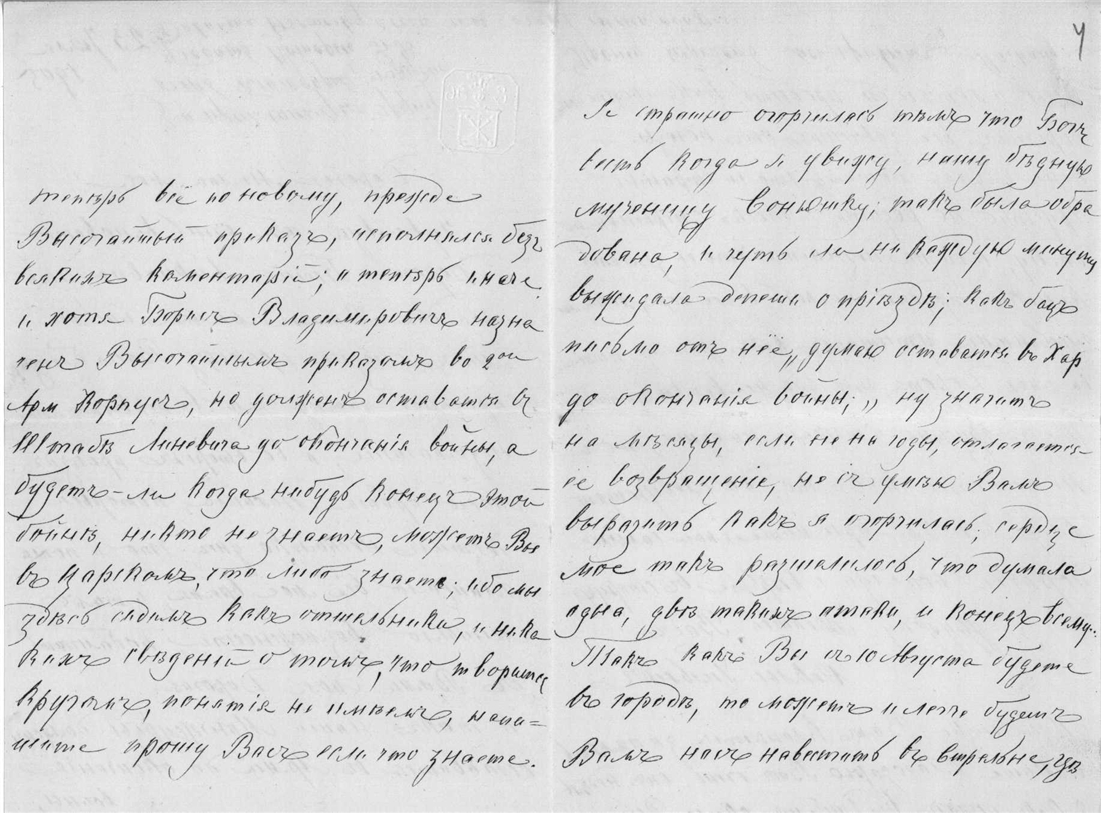 теперь всё по новому, прежде
Высочайшый приказъ, исполнялся безъ
всякихъ коментарій; и теперь иначе
и хотя Борисъ Владимировичъ назна
ченъ Высочайшымъ приказомъ во 2ой
Арм Корпусъ, но долженъ оставатся въ
Штабѣ Линевича до окончанія войны, а
будетъ-ли когда нибудь конецъ этой
войнѣ, никто не знаетъ, можетъ Вы
въ Царскомъ, что либо знаете; ибо мы
здѣсь сидимъ какъ отшельники, и ника
кихъ свѣденій о томъ, что творится
кругомъ, понятія не имѣемъ, напи=
шите прошу Васъ если что знаете.
4
Я страшно огорчилась тѣмъ что Богъ
вѣсть когда я увижу, нашу бѣдную
мученицу Сонюшку; такъ была обра
дована, и чуть ли не каждую минуту
выжидала депеши о пріѣздѣ; какъ бацъ
письмо отъ неё „думаю оставатся въ Хар
до окончанія войны; „ ну значитъ
на мѣсяцы, если не на годы, отлагается
её возвращеніе, не съумѣю Вамъ
выразить какъ я огорчилась; сердце
мое такъ разшалилось, что думала
одна, двѣ такихъ атаки, и конецъ всему..
Такъ какъ Вы съ 10 Августа будете
въ городѣ, то можетъ и легче будетъ
Вамъ насъ навестить въ Стрельне, гдѣ